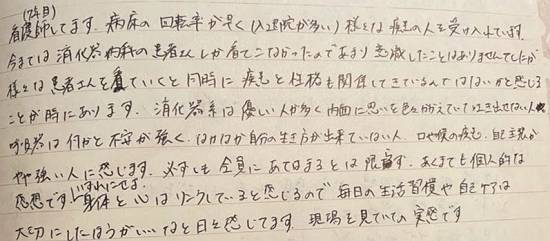 (2年目)
看護師してます。病床の回転率が早く(入退院が多い)様々な疾患の人を受け入れています。
今までは消化器内科の患者さんしか看てこなかったのであまり意識したことはありませんでしたが
様々な患者さんを看ていくと同時に疾患と性格も関係してきているんではないかと感じる
ことが時にあります。消化器系は優しい人が多く内面に思いを色々かかえていて吐き出せない人
呼吸器は何かと不安が強く、なかなか自分の生き方が出来ていない人、口や喉の疾患、自己主張が
やや強い人に感じます。必ずしも全員にあてはまるとは限らず。あくまでも個人的な
感想です。いずれにせよ、身体と心はリンクしていると感じるので毎日の生活習慣や自己ケアは
大切にしたほうがいいなと日々感じてます。現場を見ていての実感です